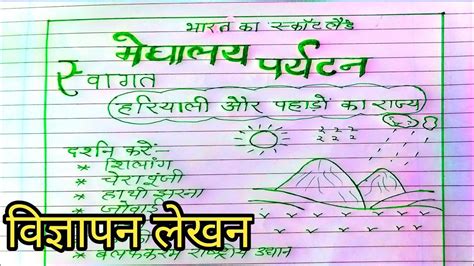 भारत का स्कॉटलैंड
मेघालय पर्यटन
स्वागत
हरियाली और पहाड़ों का राज्य
दर्शन करें:-
* शिलांग
* चेरापूंजी
* हाथी झरना
* जोवाई
विज्ञापन लेखन
राष्ट्रीय उद्यान